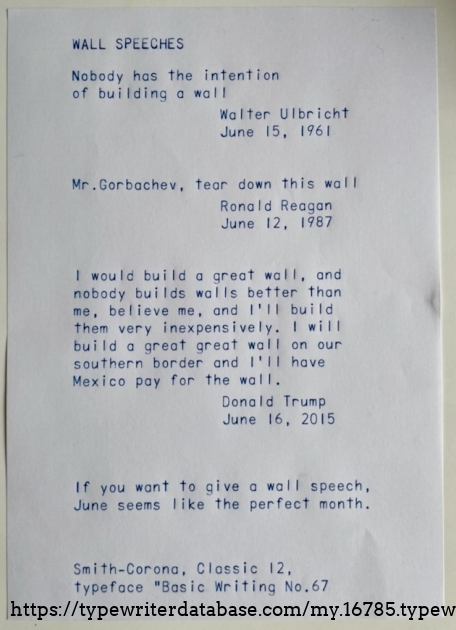 WALL SPEECHES
Nobody has the intention
of building a wall
Walter Ulbricht
June 15, 1961
Mr.Gorbachev, tear down this wall
Ronald Reagan
June 12, 1987
I would build a great wall, and
nobody builds walls better than
me, believe me, and I'll build
them very inexpensively. I will
build a great great wall on our
southern border and I'll have
Mexico pay for the wall.
Donald Trump
June 16, 2015
If you want to give a wall speech,
June seems like the perfect month.
Smith-Corona, Classic 12,
typeface "Basic Writing No.67
https://typewriterdatabase.com/my.16785.typew